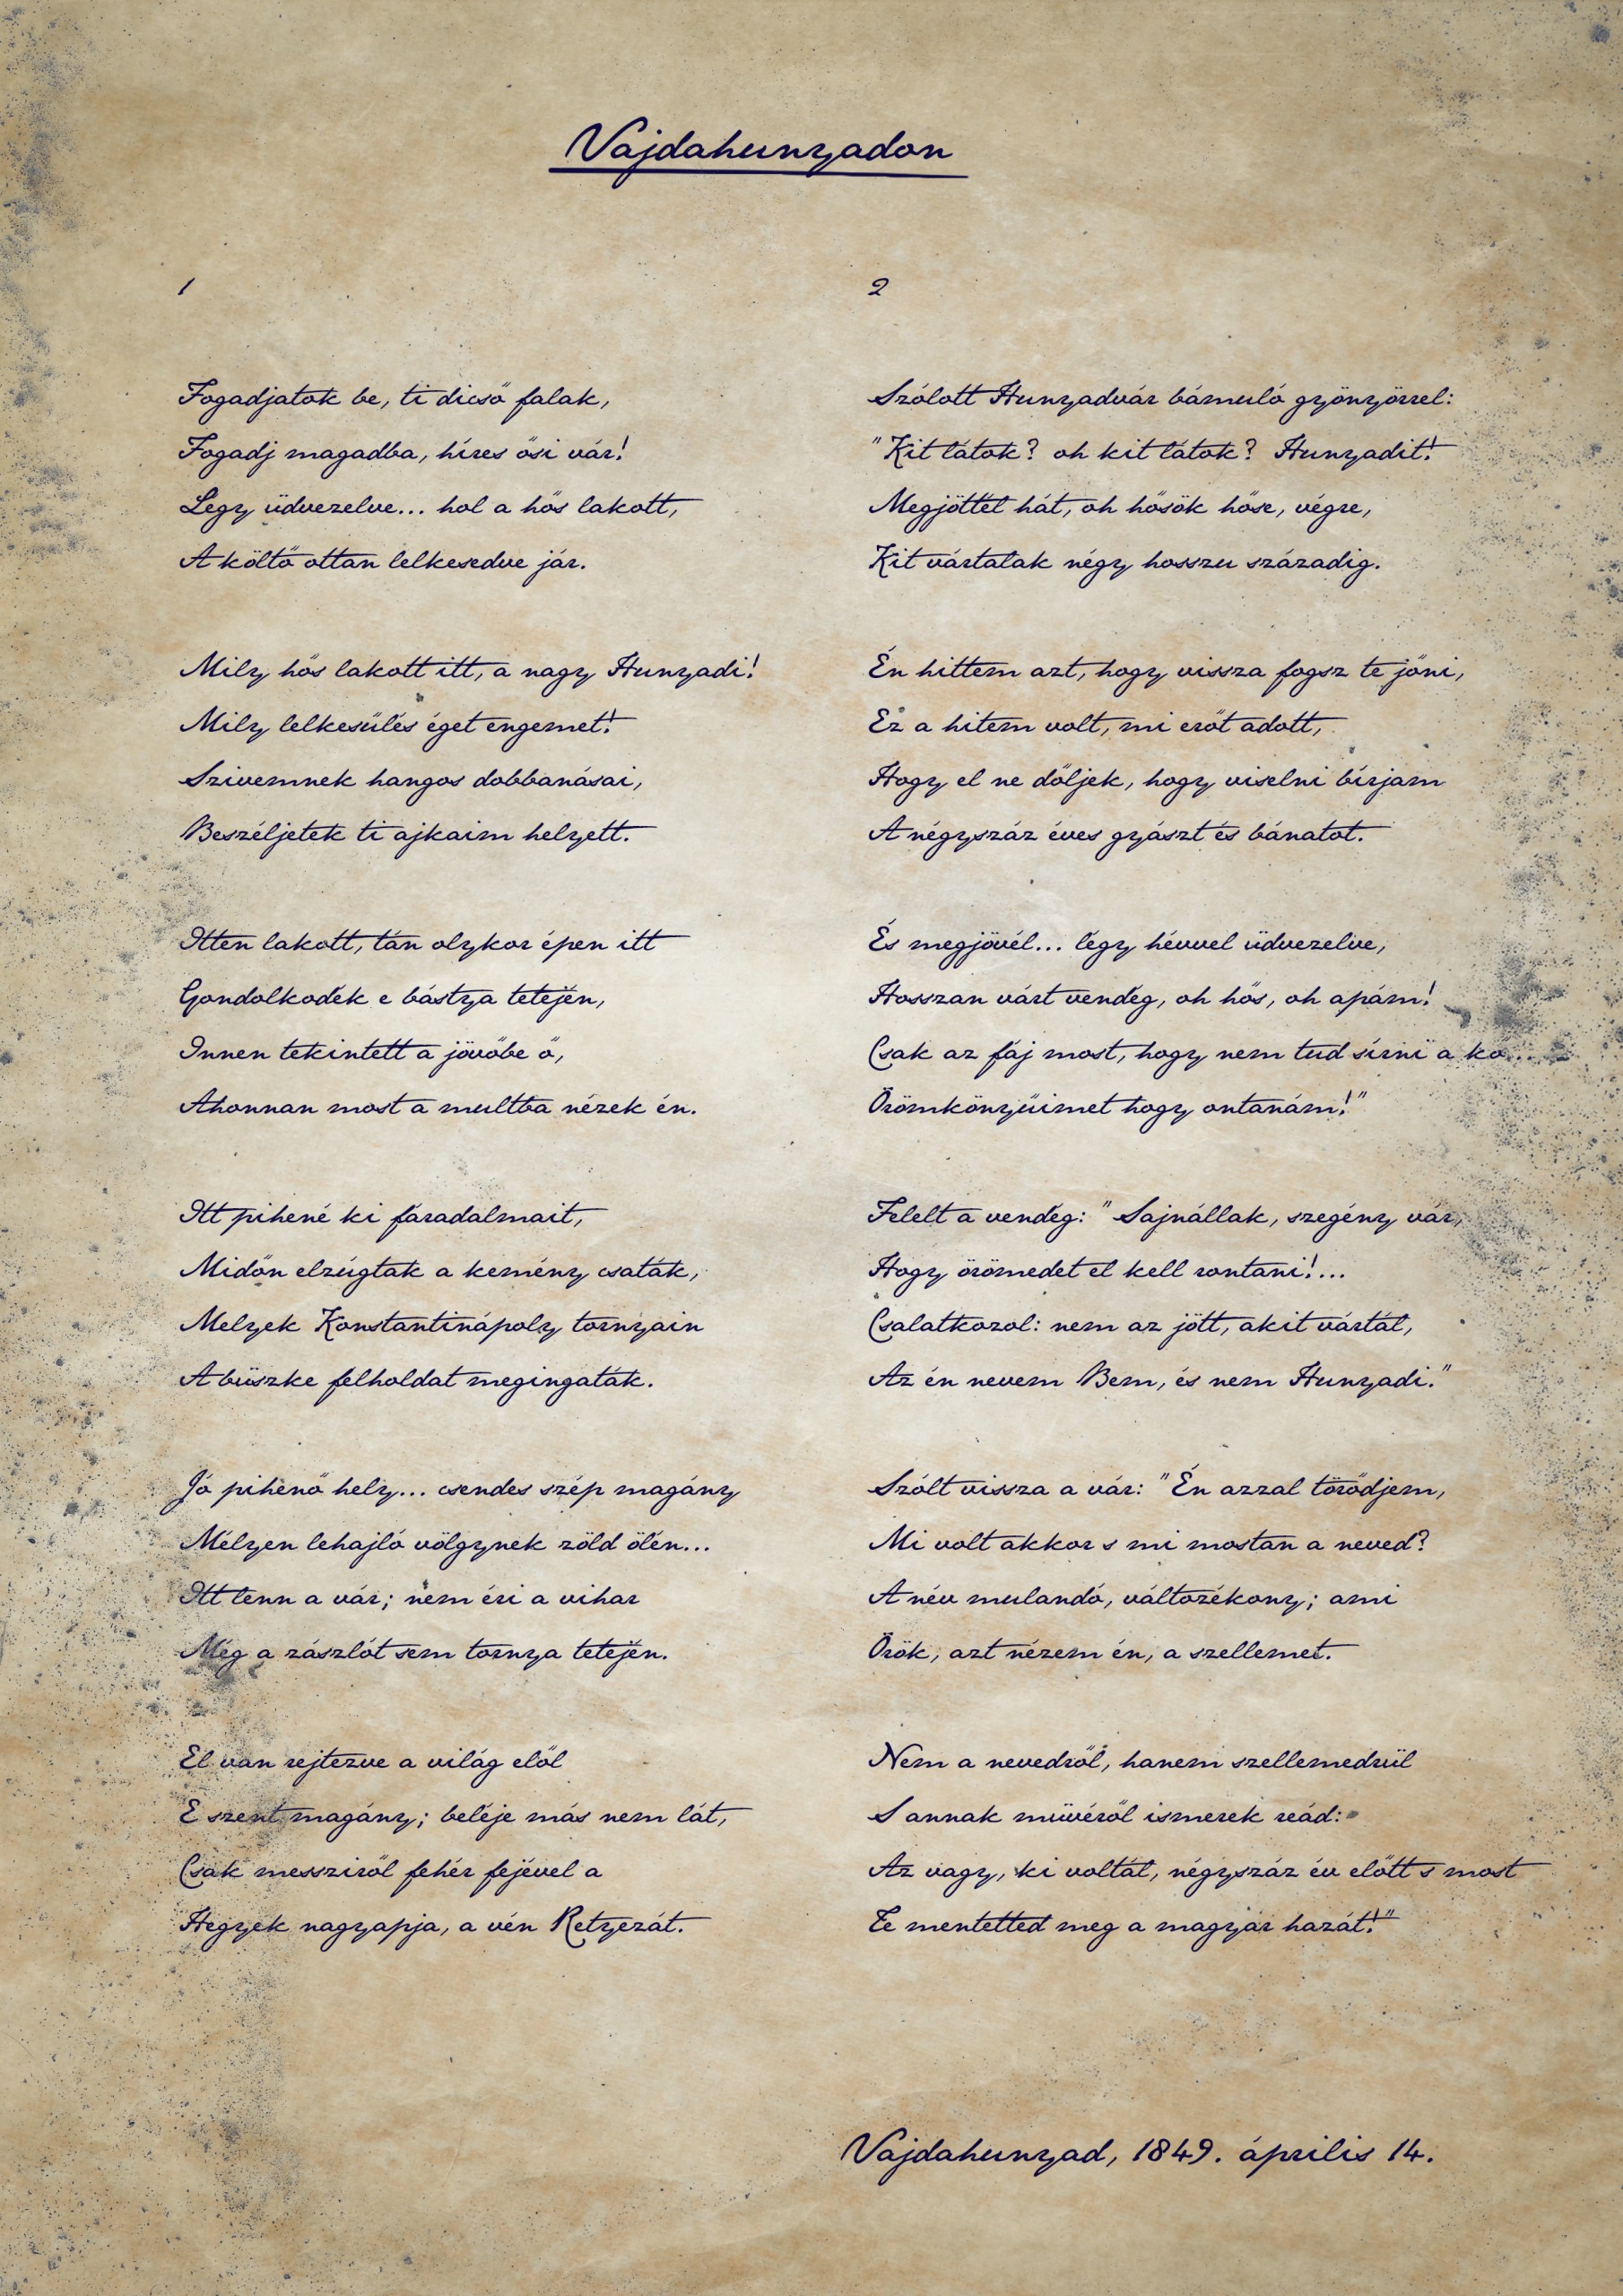 Vajdahunyadon
1
Fogadjatok be, ti dicső falak,
Fogadj magadba, híres ősi vár!
Légy üdvezelve... hol a hős lakott,
A költő ottan lelkesedve jár.
Mily hős lakott itt, a nagy Hunyadi!
Mily lelkesülés éget engemet!
Szivemnek hangos dobbanásai,
Beszéljetek ti ajkaim helyett.
Itten lakott, tán olykor épen itt
Gondolkodék e bástya tetején,
Innen tekintett a jövőbe ő,
Ahonnan most a multba nézek én.
Itt pihené ki fáradalmait,
Midőn elzúgtak a kemény csaták,
Melyek Konstantinápoly tornyain
A büszke felholdat megingaták.
Jó pihenő hely... csendes szép magány
Mélyen lehajló völgynek zöld ölén...
Itt lenn a vár; nem éri a vihar
Még a zászlót sem tornya tetején.
El van rejtezve a világ elől
E szent magány; beléje más nem lát,
Csak messziről fehér fejével a
Hegyek nagyapja, a vén Retyezát.
2
Szólott Hunyadvár bámuló gyönyörrel:
"Kit látok? oh kit látok? Hunyadit!
Megjöttél hát, oh hősök hőse, végre,
Kit vártalak négy hosszu századig.
Én hittem azt, hogy vissza fogsz te jőni,
Ez a hitem volt, mi erőt adott,
Hogy el ne dőljek, hogy viselni bírjam
A négyszáz éves gyászt és bánatot.
És megjövél... légy hévvel üdvezelve,
Hosszan várt vendég, oh hős, oh apám!
Csak az fáj most, hogy nem tud sírni a kő...
Örömkönyűimet hogy ontanám!"
Felelt a vendég: "Sajnállak, szegény vár,
Hogy örömedet el kell rontani!...
Csalatkozol: nem az jött, akit vártál,
Az én nevem Bem, és nem Hunyadi."
Szólt vissza a vár: "Én azzal törődjem,
Mi volt akkor s mi mostan a neved?
A név mulandó, változékony; ami
Örök, azt nézem én, a szellemet.
Nem a nevedről, hanem szellemedrül
S annak müvéről ismerek reád:
Az vagy, ki voltál, négyszáz év előtt s most
Te mentetted meg a magyar hazát!"
Vajdahunyad, 1849. április 14.